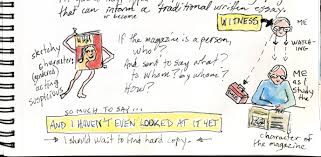 that can inform a traditional written essays
or become
WITNESS
ME
WATCHING
If the magazine is a person,
who?
And sent to say what?
to whom? by whom?
How?
sketchy
character
(gendered)
acting
suspicious
ME
as I
study
the
character of
the magazine
SO MUCH TO SAY ...
AND I HAVEN'T EVEN LOOKED AT IT YET
I should wait to find hard copy.